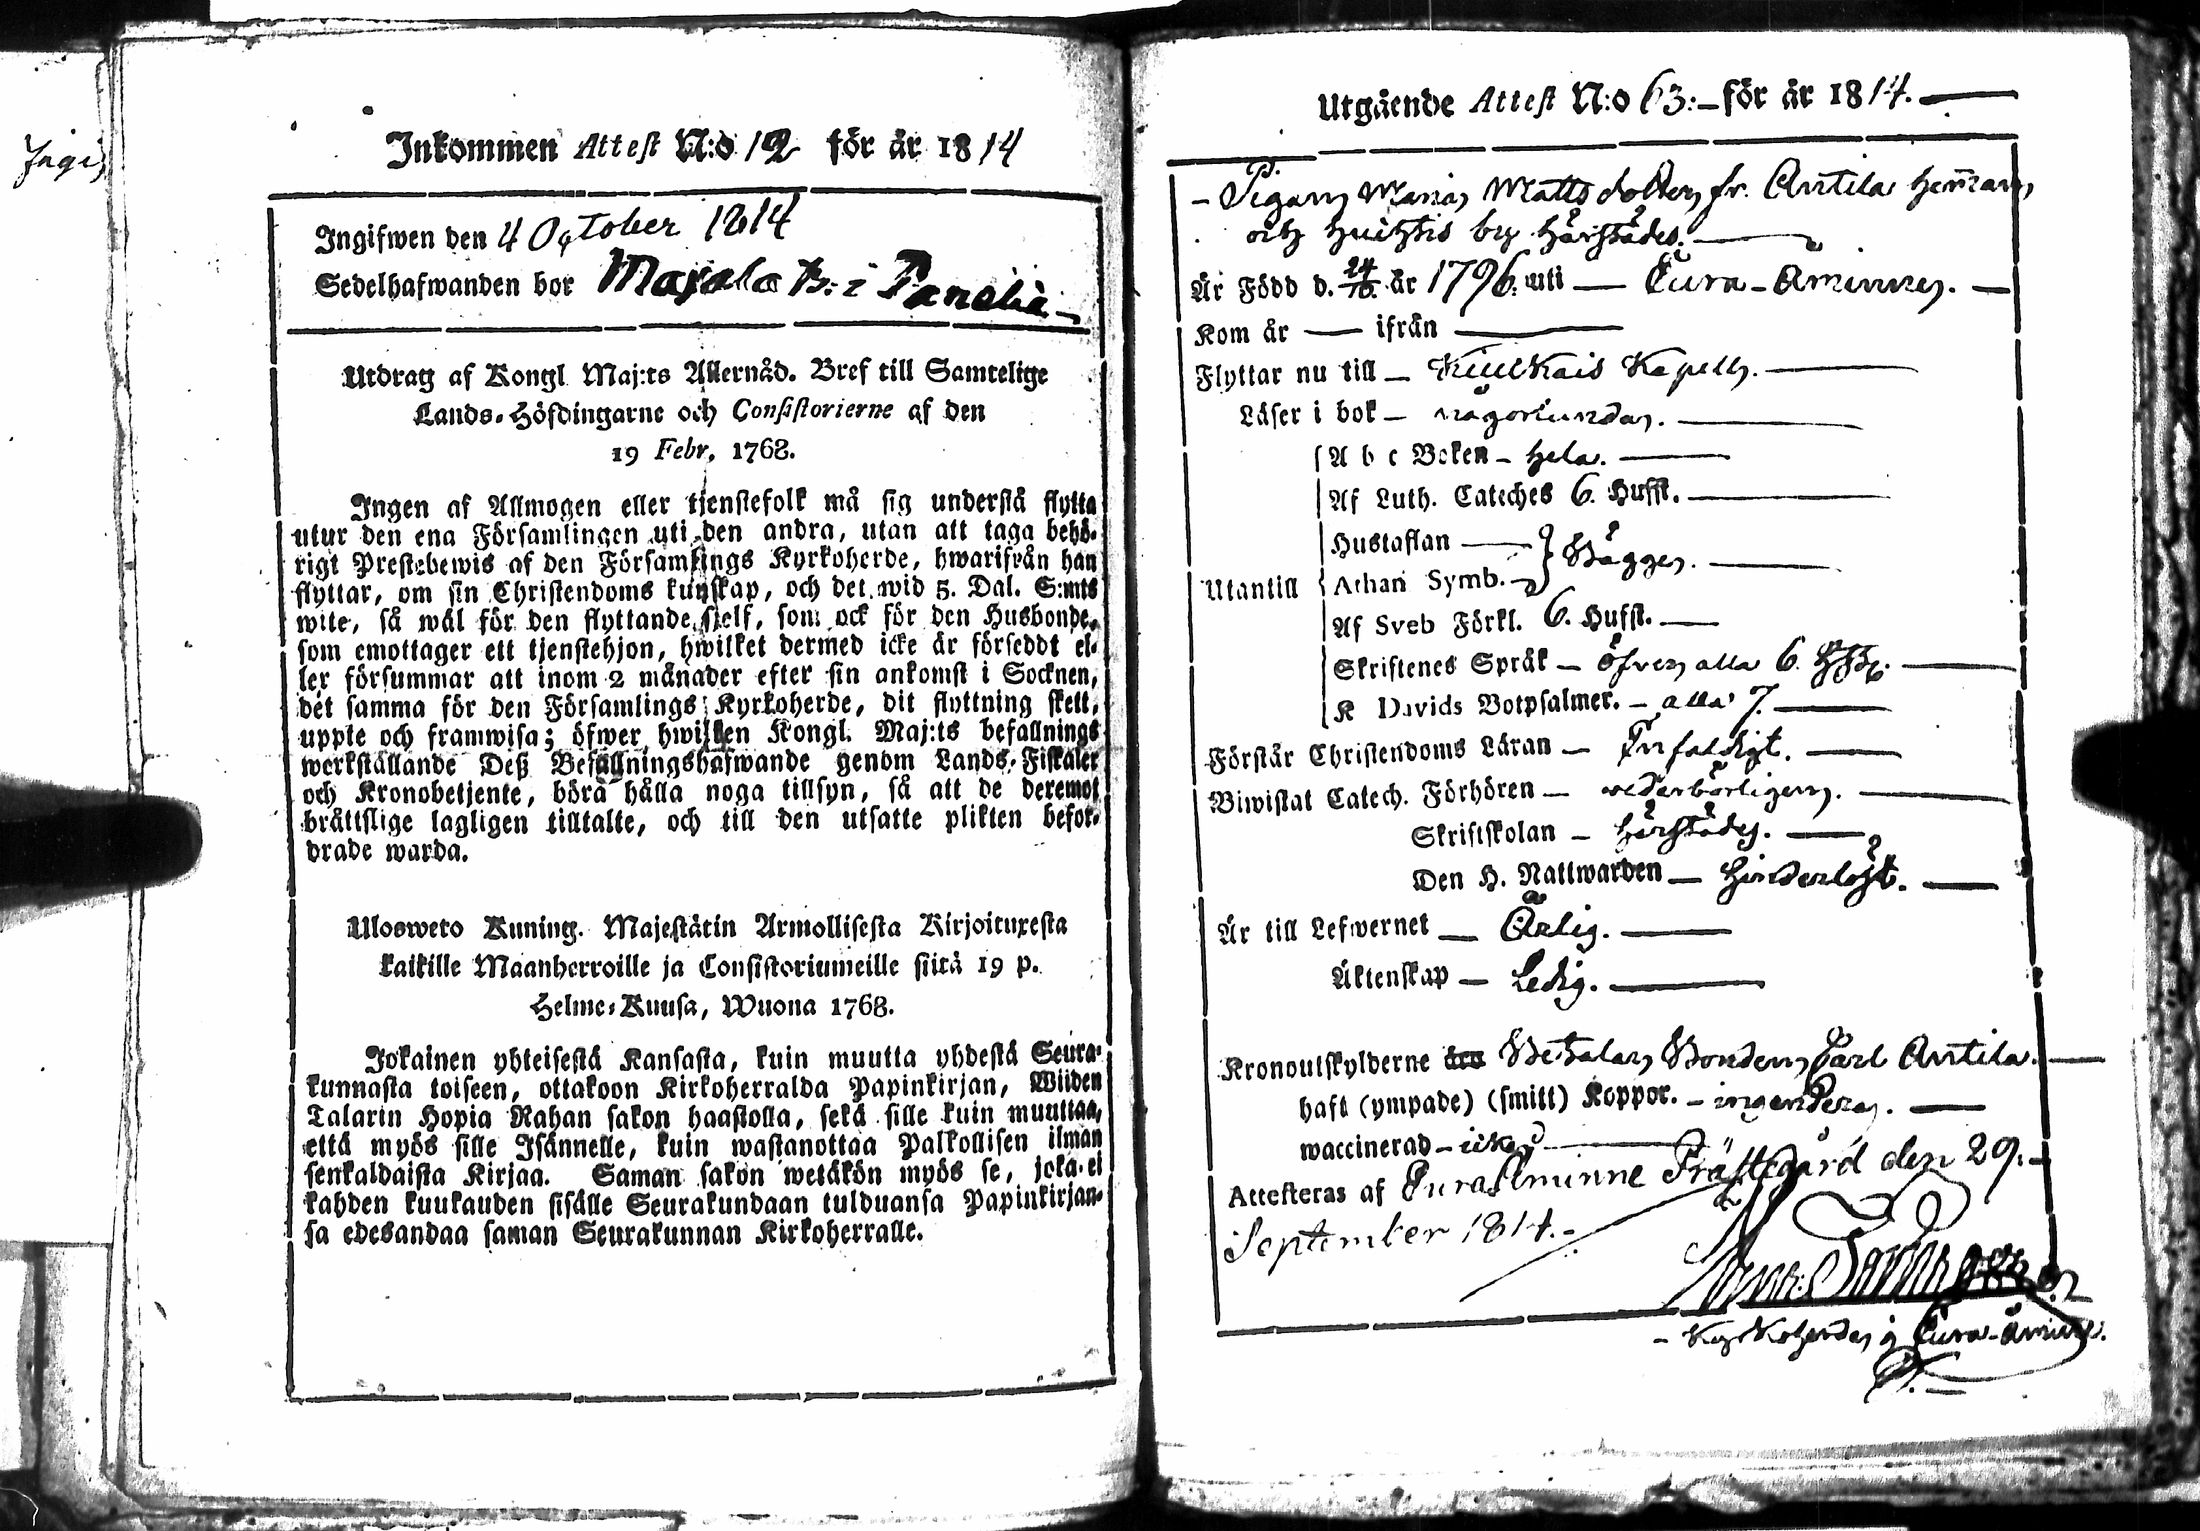 Jngi
Inkommen Attest N:o 12 för år 1814
Ingifwen den 4 October 1814
Sedelhafwanden bor Majala B: i Panelia
Utdrag af Kongl. Maj:ts Allernåd. Bref till Samtelige
Lands-Höfdingarne och Consistorierne af den
19 Febr. 1768.
Ingen af Allmogen eller tjenstefolk må sig understå flytta
utur den ena Församlingen uti den andra, utan att taga behö-
rigt Prestebewis af den Församlings Kyrkoherde, hwarifrån han
flyttar, om sin Christendoms kunskap, och det wid 5. Dal. S:mts
wite, så wäl för den flyttande sjelf, som ock för den Husbonde,
som emottager ett tjenstehjon, hwilket dermed icke är försedt el-
ler försummar att inom 2 månader efter sin ankomst i Socknen,
det samma för den Församlings Kyrkoherde, dit flyttning skett,
uppte och framwisa; öfwer hwilken Kongl. Maj:ts befallnings
werkställande Deß Befallningshafwande genom Lands-Fiskaler
och Kronobetjente, böra hålla noga tillsyn, så att de deremot
bråttslige lagligen tilltalte, och till den utsatte plikten befor-
drade warda.
Ulosweto Kuning. Majestätin Armollisesta Kirjoituxesta
kaikille Maanherroille ja Consistoriumeille siitä 19 p.
Helme-Kuusa, Wuona 1768.
Jokainen yhteisestä Kansasta, kuin muutta yhdestä Seura-
kunnasta toiseen, ottakoon Kirkoherralda Papinkirjan, Wiiden
Talarin Hopia Rahan sakon haastolla, sekä sille kuin muuttaa,
että myös sille Isännelle, kuin wastanottaa Palkollisen ilman
senkaldaista Kirjaa. Saman sakon wetäkön myös se, joka ei
kahden kuukauden sisälle Seurakundaan tulduansa Papinkirjan-
sa edesandaa saman Seurakunnan Kirkoherralle.
Utgående Attest N:o 63: för år 1814.
P.
Pigan Maria Matts dotter fr. Antila Hemman
och by härstädes.
Är Född d. 24/10. år 1796. uti Eura-Åminne.
Kom år ifrån
Flyttar nu till Kiulkais Kapell.
Läser i bok någorlunda.
A b c Boken hela.
Af Luth. Cateches 6. Hufst.
Hustaflan
Bägge.
Utantill Athan Symb.
Af Sveb Förkl. 6. Hufst.
Skriftenes Språk öfver alla 6. HSt.
K Davids Botpsalmer. alla 7.
Förstår Christendoms Läran Enfaldigt.
Biwistat Catech. Förhören vederbörligen.
Skriftskolan härstädes.
Den H. Nattwarden hinderlöst.
Är till Lefwernet Ärlig.
Äktenskap Ledig.
Kronoutskylderne Betalar Bonden Carl Antila.
haft (ympade) (smitt) Koppor. ingendera.
waccinerad icke
Attesteras af EuraÅminne Prästegård den 29.
September 1814.
Kyrkoherde i Eura-Åminne.